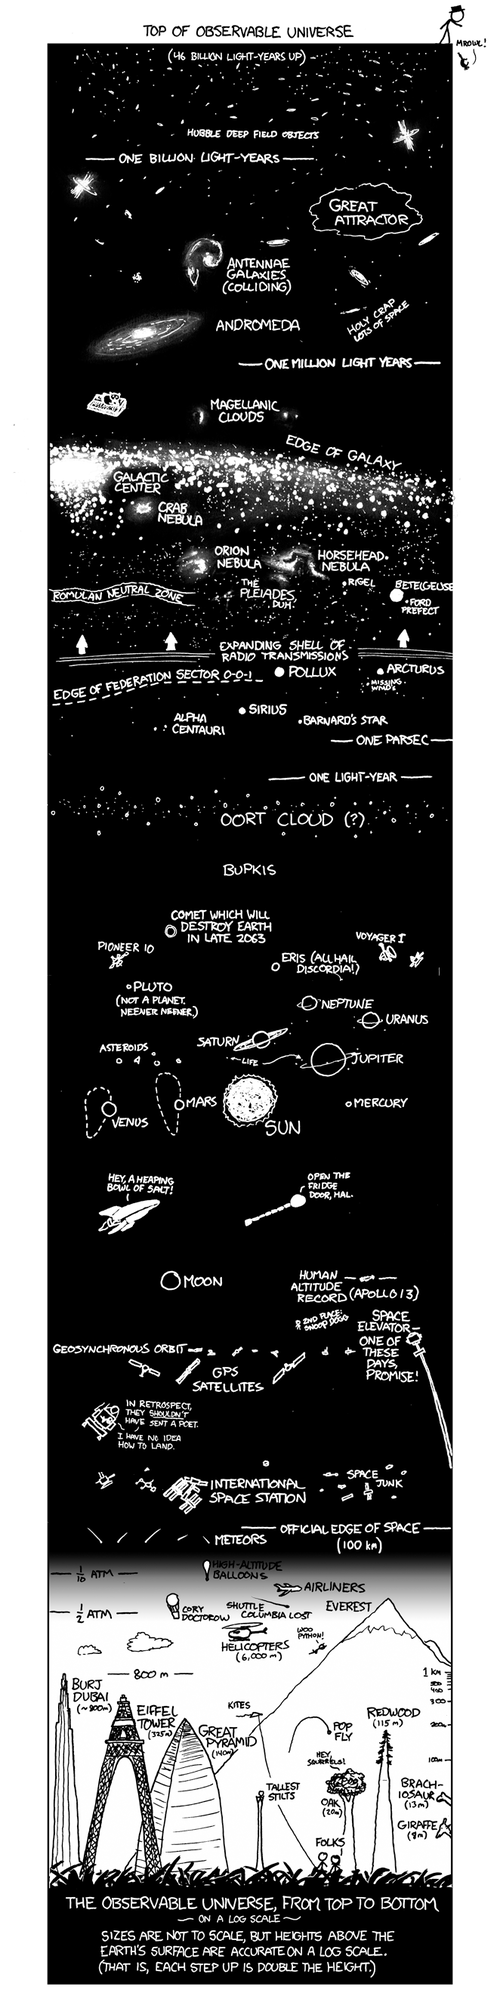 TOP OF OBSERVABLE UNIVERSE
MROWL!
(46 BILLION LIGHT-YEARS UP)
HUBBLE DEEP FIELD OBJECTS
ONE BILLION LIGHT-YEARS
GREAT
ATTRACTOR
ANTENNAE
GALAXIES
(COLLIDING)
HOLY CRAP
LOTS OF SPACE
ANDROMEDA
ONE MILLION LIGHT YEARS
MAGELLANIC
CLOUDS
EDGE OF GALAXY
GALACTIC
CENTER
CRAB
NEBULA
ORION
NEBULA
HORSEHEAD
NEBULA
THE
PLEIADES,
DUH.
RIGEL
BETELGEUSE
FORD
PREFECT
ROMULAN NEUTRAL ZONE
EXPANDING SHELL OF
RADIO TRANSMISSIONS
EDGE OF FEDERATION SECTOR 0-0-1
POLLUX
ARCTURUS
MISSING
WMD'S
SIRIUS
ALPHA
CENTAURI
BARNARD'S STAR
ONE PARSEC
ONE LIGHT-YEAR
OORT CLOUD (?)
BUPKIS
COMET WHICH WILL
DESTROY EARTH
IN LATE 2063
PIONEER 10
VOYAGER I
ERIS (ALL HAIL
DISCORDIA!)
PLUTO
(NOT A PLANET.
NEENER NEENER.)
NEPTUNE
URANUS
SATURN
ASTEROIDS
LIFE
JUPITER
MARS
VENUS
SUN
MERCURY
HEY, A HEAPING
BOWL OF SALT!
OPEN THE
FRIDGE
DOOR, HAL.
MOON
HUMAN
ALTITUDE
RECORD (APOLLO 13)
2ND PLACE:
SNOOP DOGG
SPACE
ELEVATOR
ONE OF
THESE
DAYS,
PROMISE!
GEOSYNCHRONOUS ORBIT
GPS
SATELLITES
IN RETROSPECT,
THEY SHOULDN'T
HAVE SENT A POET.
I HAVE NO IDEA
HOW TO LAND.
INTERNATIONAL
SPACE STATION
SPACE
JUNK
METEORS
OFFICIAL EDGE OF SPACE
(100 km)
1/10 ATM
HIGH-ALTITUDE
BALLOONS
AIRLINERS
1/2 ATM
CORY
DOCTOROW
SHUTTLE
COLUMBIA LOST
EVEREST
HELICOPTERS
(6,000 m)
WOO
PYTHON!
800 m
BURJ
DUBAI
(~800m)
EIFFEL
TOWER
(325m)
GREAT
PYRAMID
(140m)
KITES
POP
FLY
REDWOOD
(115 m)
1 KM
300
200m
100m
HEY,
SQUIRRELS!
OAK
(20m)
TALLEST
STILTS
BRACH-
IOSAUR
(13m)
GIRAFFE
(8m)
FOLKS
THE OBSERVABLE UNIVERSE, FROM TOP TO BOTTOM
~ ON A LOG SCALE ~
SIZES ARE NOT TO SCALE, BUT HEIGHTS ABOVE THE
EARTH'S SURFACE ARE ACCURATE ON A LOG SCALE.
(THAT IS, EACH STEP UP IS DOUBLE THE HEIGHT.)